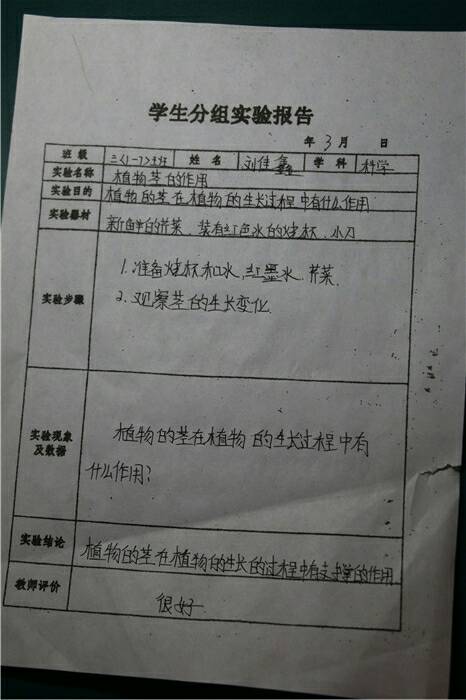 学生分组实验报告
年 3 月 日
班级 三(1-7)班 姓名 刘佳鑫 学科 科学
实验名称 植物茎的作用
实验目的 植物的茎在植物的生长过程中有什么作用
实验器材 新鲜的芹菜、装有红色水的烧杯、小刀
实验步骤
1.准备烧杯和水、红墨水、芹菜.
2.观察茎的生长变化.
实验现象及数据
植物的茎在植物的生长过程中有
什么作用?
实验结论 植物的茎在植物的生长的过程中有支撑的作用
教师评价 很好